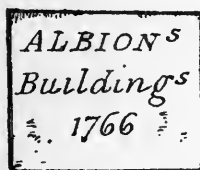 ALBIONs
Buildings
1766